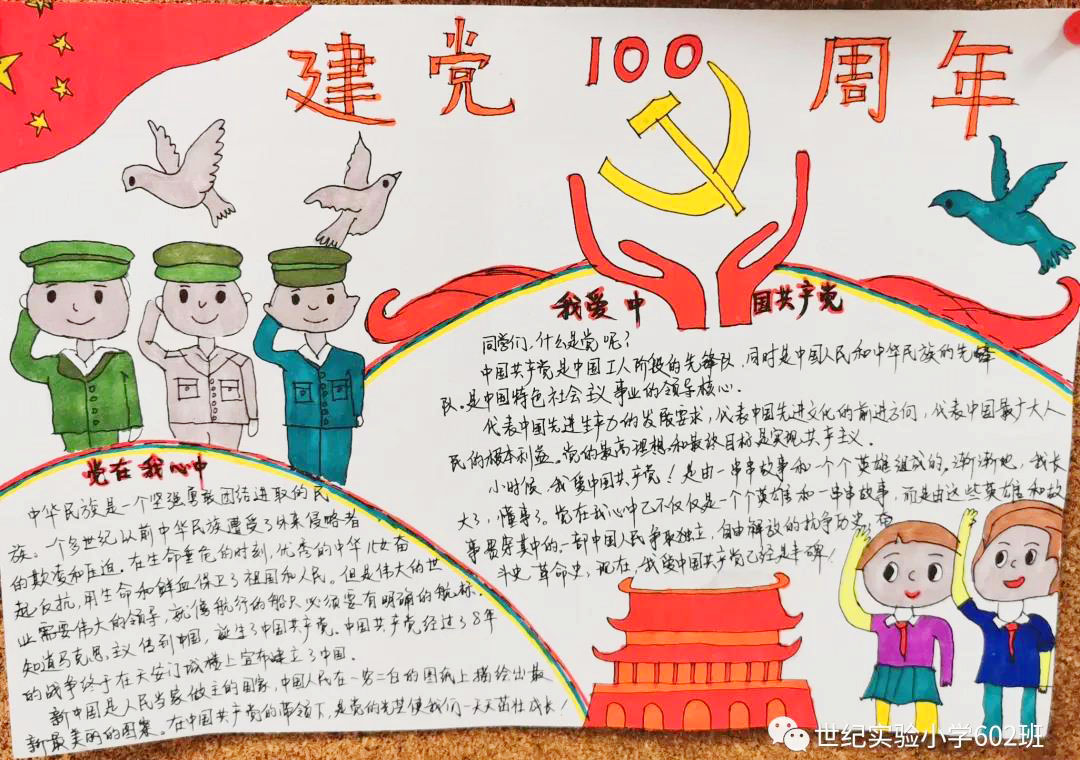 建党100周年
我爱中国共产党
同学们，什么是党呢？
中国共产党是中国工人阶段的先锋队，同时是中国人民和中华民族的先锋
队。是中国特色社会主义事业的领导核心．
代表中国先进生产力的发展要求，代表中国先进文化的前进方向，代表中国最广大人
民的根本利益。党的最高理想和最终目标是实现共产主义．
小时候，我爱中国共产党！是由一串串故事和一个个英雄组成的。渐渐地，我长
大了，懂事了。党在我心中已不仅仅是一个个英雄和一串串故事，而是由这些英雄和故
事贯穿其中的一部中国人民争取独立，自由解放的抗争历史，奋
斗史，革命史，现在，我爱中国共产党已经是丰碑！
党在我心中
中华民族是一个坚强勇敢团结进取的民
族。一个多世纪以前中华民族遭受了外来侵略者
的欺凌和压迫．在生命垂危的时刻，优秀的中华儿女奋
起反抗，用生命和鲜血保卫了祖国和人民。但是伟大的世
业需要伟大的领导，就像航行的船只必须要有明确的航标．
知道马克思主义传到中国，诞生了中国共产党．中国共产党经过38年
的战争终于在天安门城楼上宣布建立了中国．
新中国是人民当家做主的国家，中国人民在一穷二白的图纸上描绘出最
新最美丽的图案。在中国共产党的带领下，是党的光芒使我们一天天茁壮成长！
世纪实验小学602班